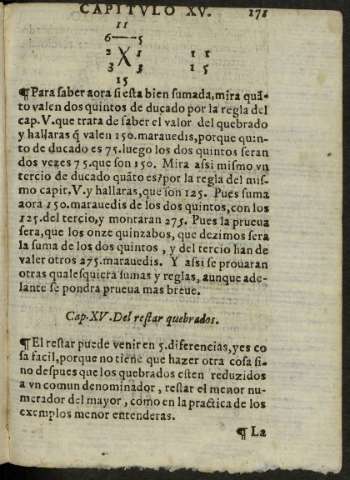 CAPITVLO XV. 171
11
6—5
2 X 1 1 1
3 3 1 5
15
¶Para saber aora si esta bien sumada, mira quã-
to valen dos quintos de ducado por la regla del
cap.V.que trata de saber el valor del quebrado
y hallaras q̃ valen 150.marauedis, porque quin-
to de ducado es 75.luego los dos quintos seran
dos vezes 75.que son 150. Mira assi mismo vn
tercio de ducado quãto es?por la regla del mis-
mo capit,V.y hallaras,que son 125. Pues suma
aora 150.marauedis de los dos quintos,con los
125.del tercio,y montaran 275. Pues la prueua
sera,que los onze quinzabos, que dezimos sera
la suma de los dos quintos , y del tercio han de
valer otros 275.marauedis. Y assi se prouaran
otras qualesquiera sumas y reglas, aunque ade-
lante se pondra prueua mas breue.
Cap.XV.Del restar quebrados.
¶El restar puede venir en 5.diferencias,yes co
sa facil,porque no tiene que hazer otra cosa si-
no despues que los quebrados esten reduzidos
a vn comun denominador , restar el menor nu-
merador del mayor, como en la practica de los
exemplos menor entenderas.
¶ La